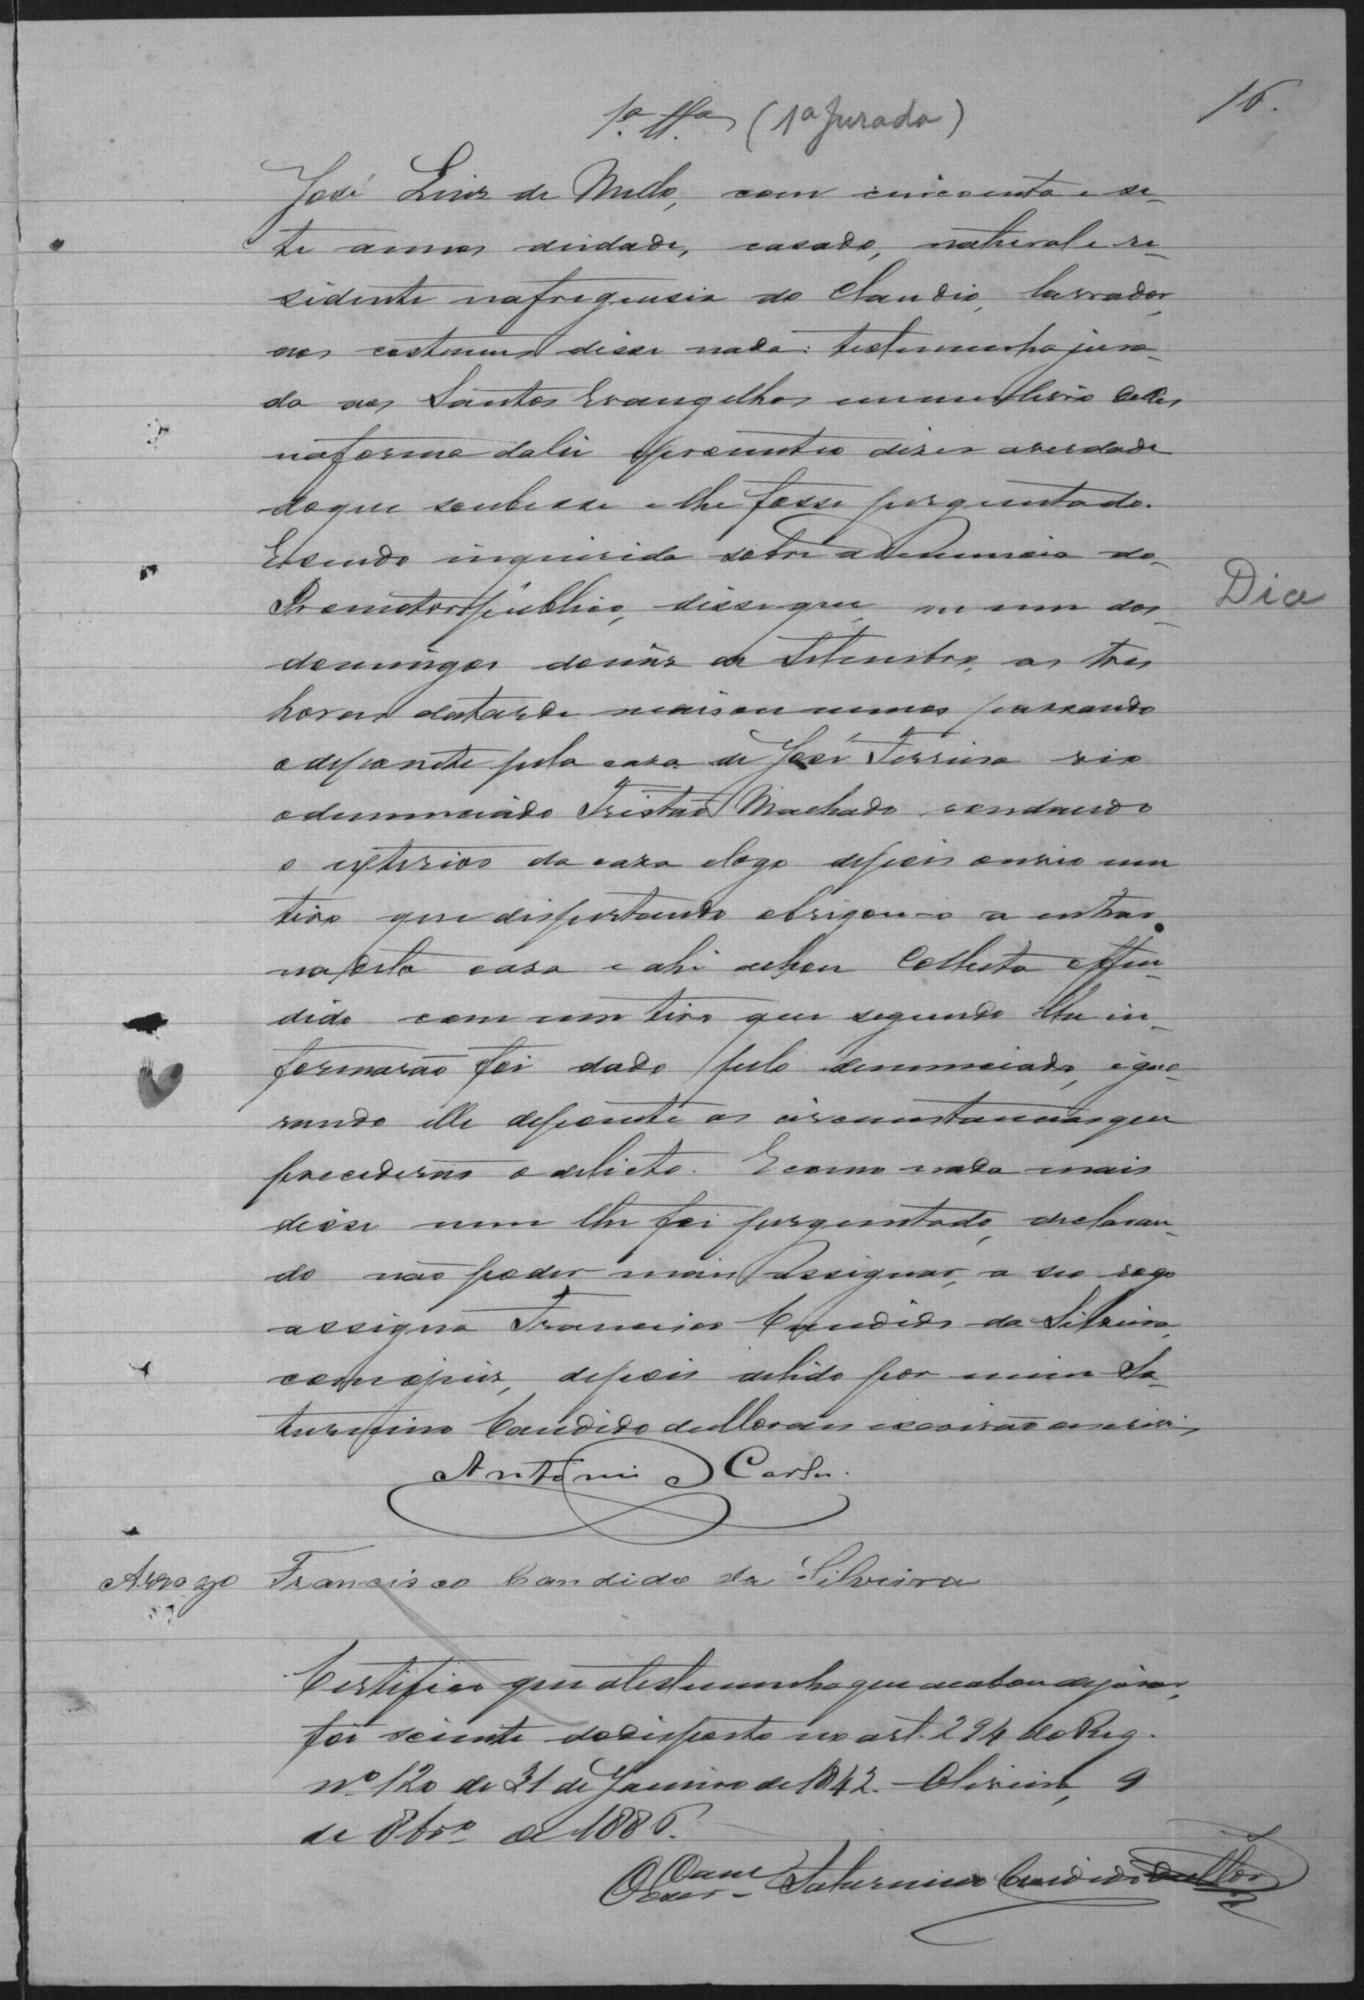 16.
1ª Tª (1ª Jurada)
José Luiz de Mello, com cincoenta e se-
te annos didade, casado, natural e re-
sidente nafreguesia do Claudio, lavrador,
aos costumes disse nada: testemunha jura-
da aos Santos Evangelhos em um livro delles
naforma dalei e prometteo dizer averdade
doque soubesse e lhe fosse perguntado.
Esendo inquirida sobre a denuncia do
Promotor publico, disse que, em um dos
domingos domez de Setembro, as tres
horas datarde mais ou menos passando
o depoente pela casa de José Ferreira vio
odenunciado Tristão Machado rondando
o exterior da casa elogo depois ouvio um
tiro que dispertando obrigou-o a entrar
na dita casa e ahi achou Colheta offen-
dido com um tiro que segundo lhe in-
formarão foi dado pelo denunciado, igno-
rando elle depoente as circumstancias que
precederão o delicto. E como nada mais
disse nem lhe foi perguntado, declaran-
do não poder mais assignar, a seo rogo
assigna Francisco Candido da Silveira,
com o juiz, depois de lido por mim Sa-
turnino Candido de escrivão o escrivi
Antonio Carlos
Arrogo Francisco Candido da Silveira
Certifico que atestemunha que acabou dejurar,
foi sciente dodisposto no art. 294 do Reg.
nº 120 de 31 de Janeiro de 1842. Oliveira, 9
de 8brº de 1886.
Saturnino Candido
Dia